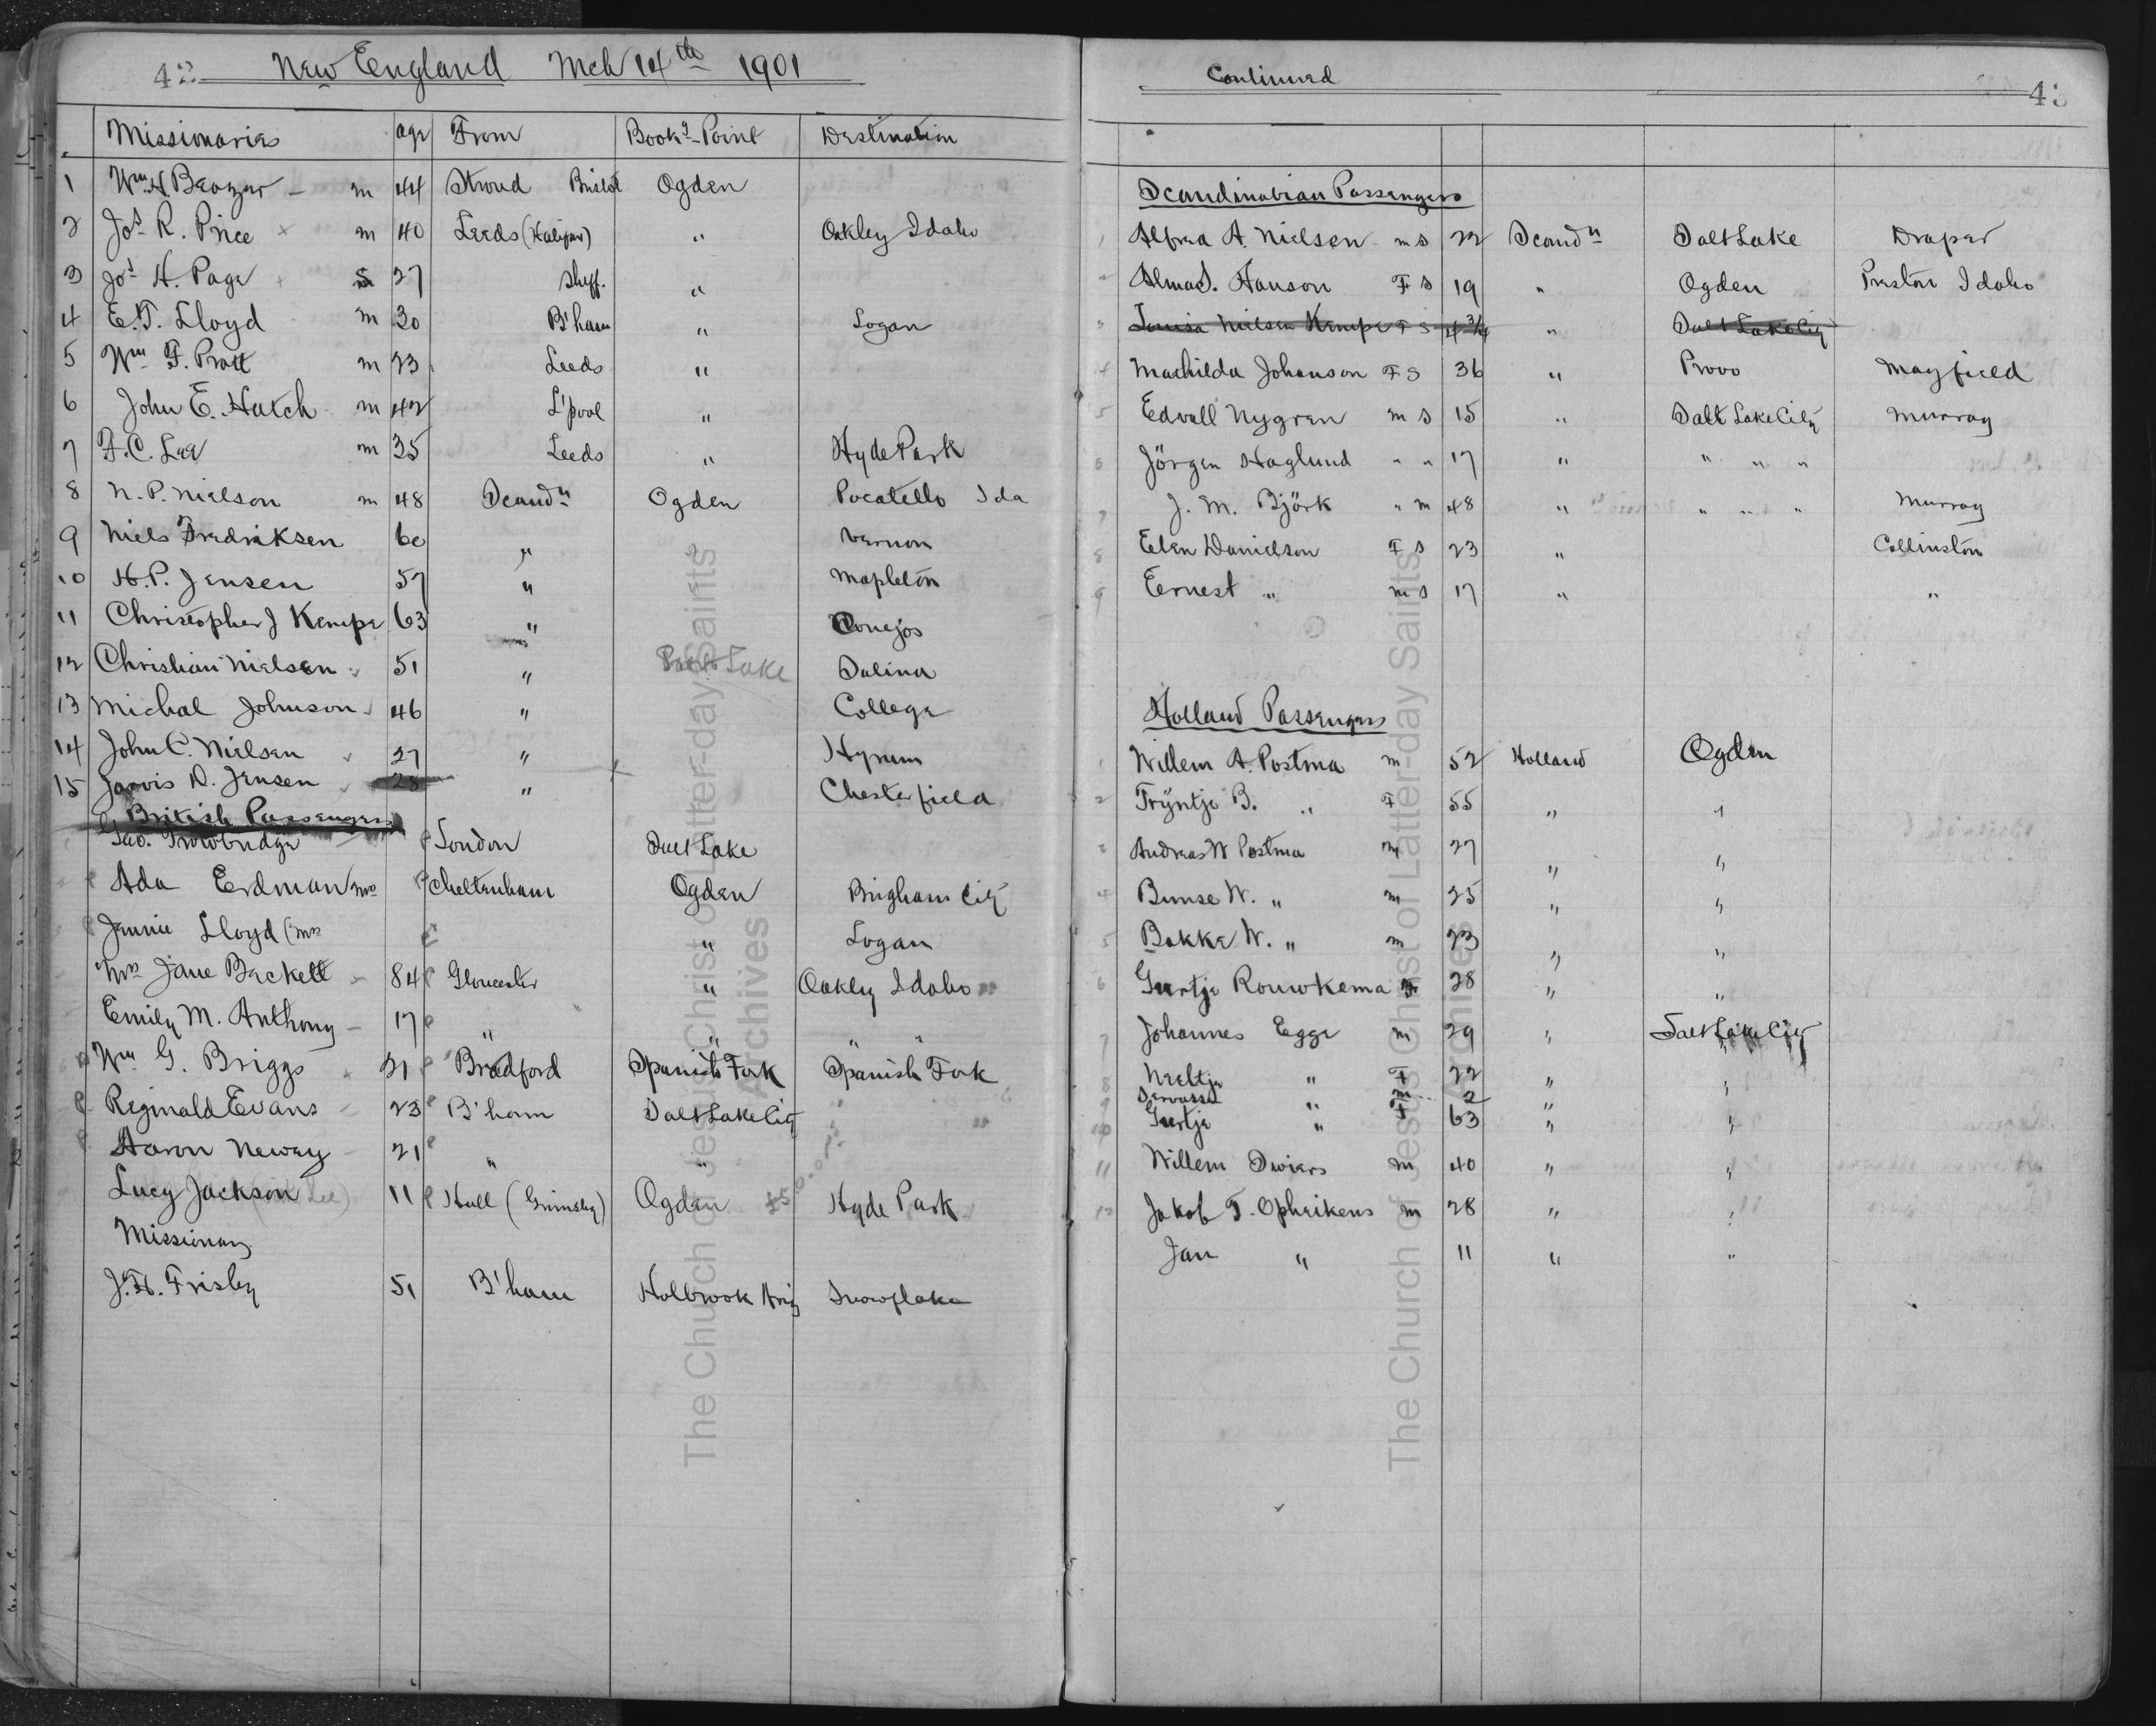 42 New England Mch 14th 1901
Missionaries age From Book'g-Point Destination
1 Wm H Beazer - m 44 Stroud Bristol Ogden
2 Jos R. Price x m 40 Leeds (Halifax) " Oakley Idaho
3 Jos H. Page s 27 Sheff. "
4 E.T. Lloyd m 30 B'ham " Logan
5 Wm F. Pratt m 23 Leeds "
6 John E. Hatch m 42 L'pool "
7 F.C. Lee m 35 Leeds " Hyde Park
8 N.P. Nielson m 48 Scandn Ogden Pocatello Ida
9 Niels Fredriksen 60 " Vernon
10 H.P. Jensen 57 " Mapleton
11 Christopher J Kempe 63 " Conejos
12 Christian Nielsen 51 " Lake Salina
13 Michal Johnson 46 " College
14 John C. Nielsen 27 " Hyrum
15 Jarvis D. Jensen 28 " Chesterfield
British Passengers
Geo. Trowbridge London Salt Lake
Ada Erdman Mrs Cheltenham Ogden Brigham City
Jennie Lloyd (Mrs " Logan
Mrs Jane Beckett 84 Gloucester " Oakley Idaho
Emily M. Anthony - 17 " " " "
Wm G. Briggs 21 Bradford Spanish Fork Spanish Fork
Reginald Evans 23 B'ham Salt Lake City
Aaron Newey 21 " "
Lucy Jackson 11 Hull (Grimsby) Ogden Hyde Park
Missionary
J.H. Frisby 51 B'ham Holbrook Ariz Snowflake
Continued 43
Scandinavian Passengers
1 Alfred A. Nielsen m s 22 Scandn Salt Lake Draper
2 Alma S. Hanson F s 19 " Ogden Preston Idaho
3 Louisa Nielsen Kempe F S 4 3/4 " Salt Lake City
4 Machilda Johanson F S 36 " Provo Mayfield
5 Edvall Nygren m s 15 " Salt Lake City Murray
6 Jörgen Haglund " " 17 " " " "
7 J. M. Björk " m 48 " " " " Murray
8 Elen Danielson F s 23 " Collinston
9 Eernest " m s 17 " "
Holland Passengers
1 Willem A. Postma m 52 Holland Ogden
2 Tryntje B. " F 55 " "
3 Andreas W Postma m 27 " "
4 Bunse W. " m 25 " "
5 Bokke W. " m 23 " "
6 Geertje Rouwkema F 28 " "
7 Johannes Egge m 29 " Salt Lake City
8 Neeltje " F 22 " "
9 " m 2 " "
10 Geertje " F 63 " "
11 Willem Dwiers m 40 " "
12 Jakob T. Ophrikens m 28 " "
Jan " 11 " "
The Church of Jesus Christ of Latter-day Saints
Archives
The Church of Jesus Christ of Latter-day Saints
Archives